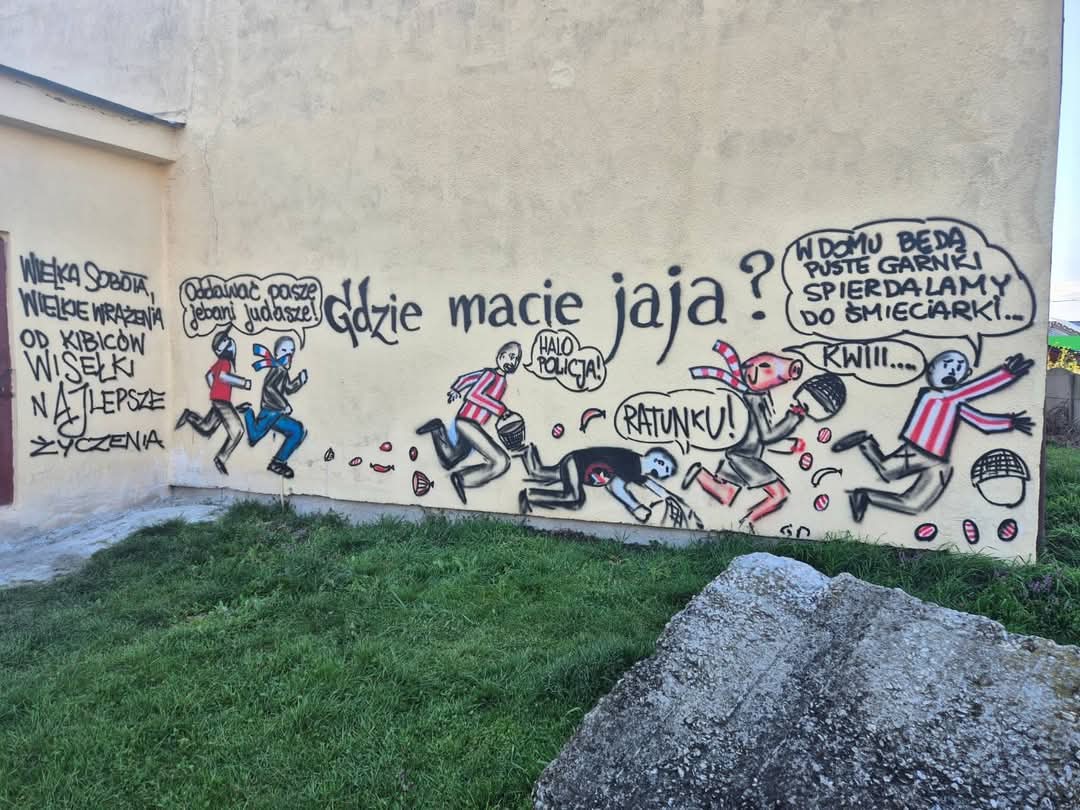 WIELKA SOBOTA,
WIELKIE WRAŻENIA
OD KIBICÓW
WISEŁKI
NAJLEPSZE
ŻYCZENIA
Oddawać paszę
jebani judasze!
Gdzie macie jaja?
HALO
POLICJA!
RATUNKU!
KWIII...
W DOMU BĘDĄ
PUSTE GARNKI
SPIERDALAMY
DO ŚMIECIARKI...